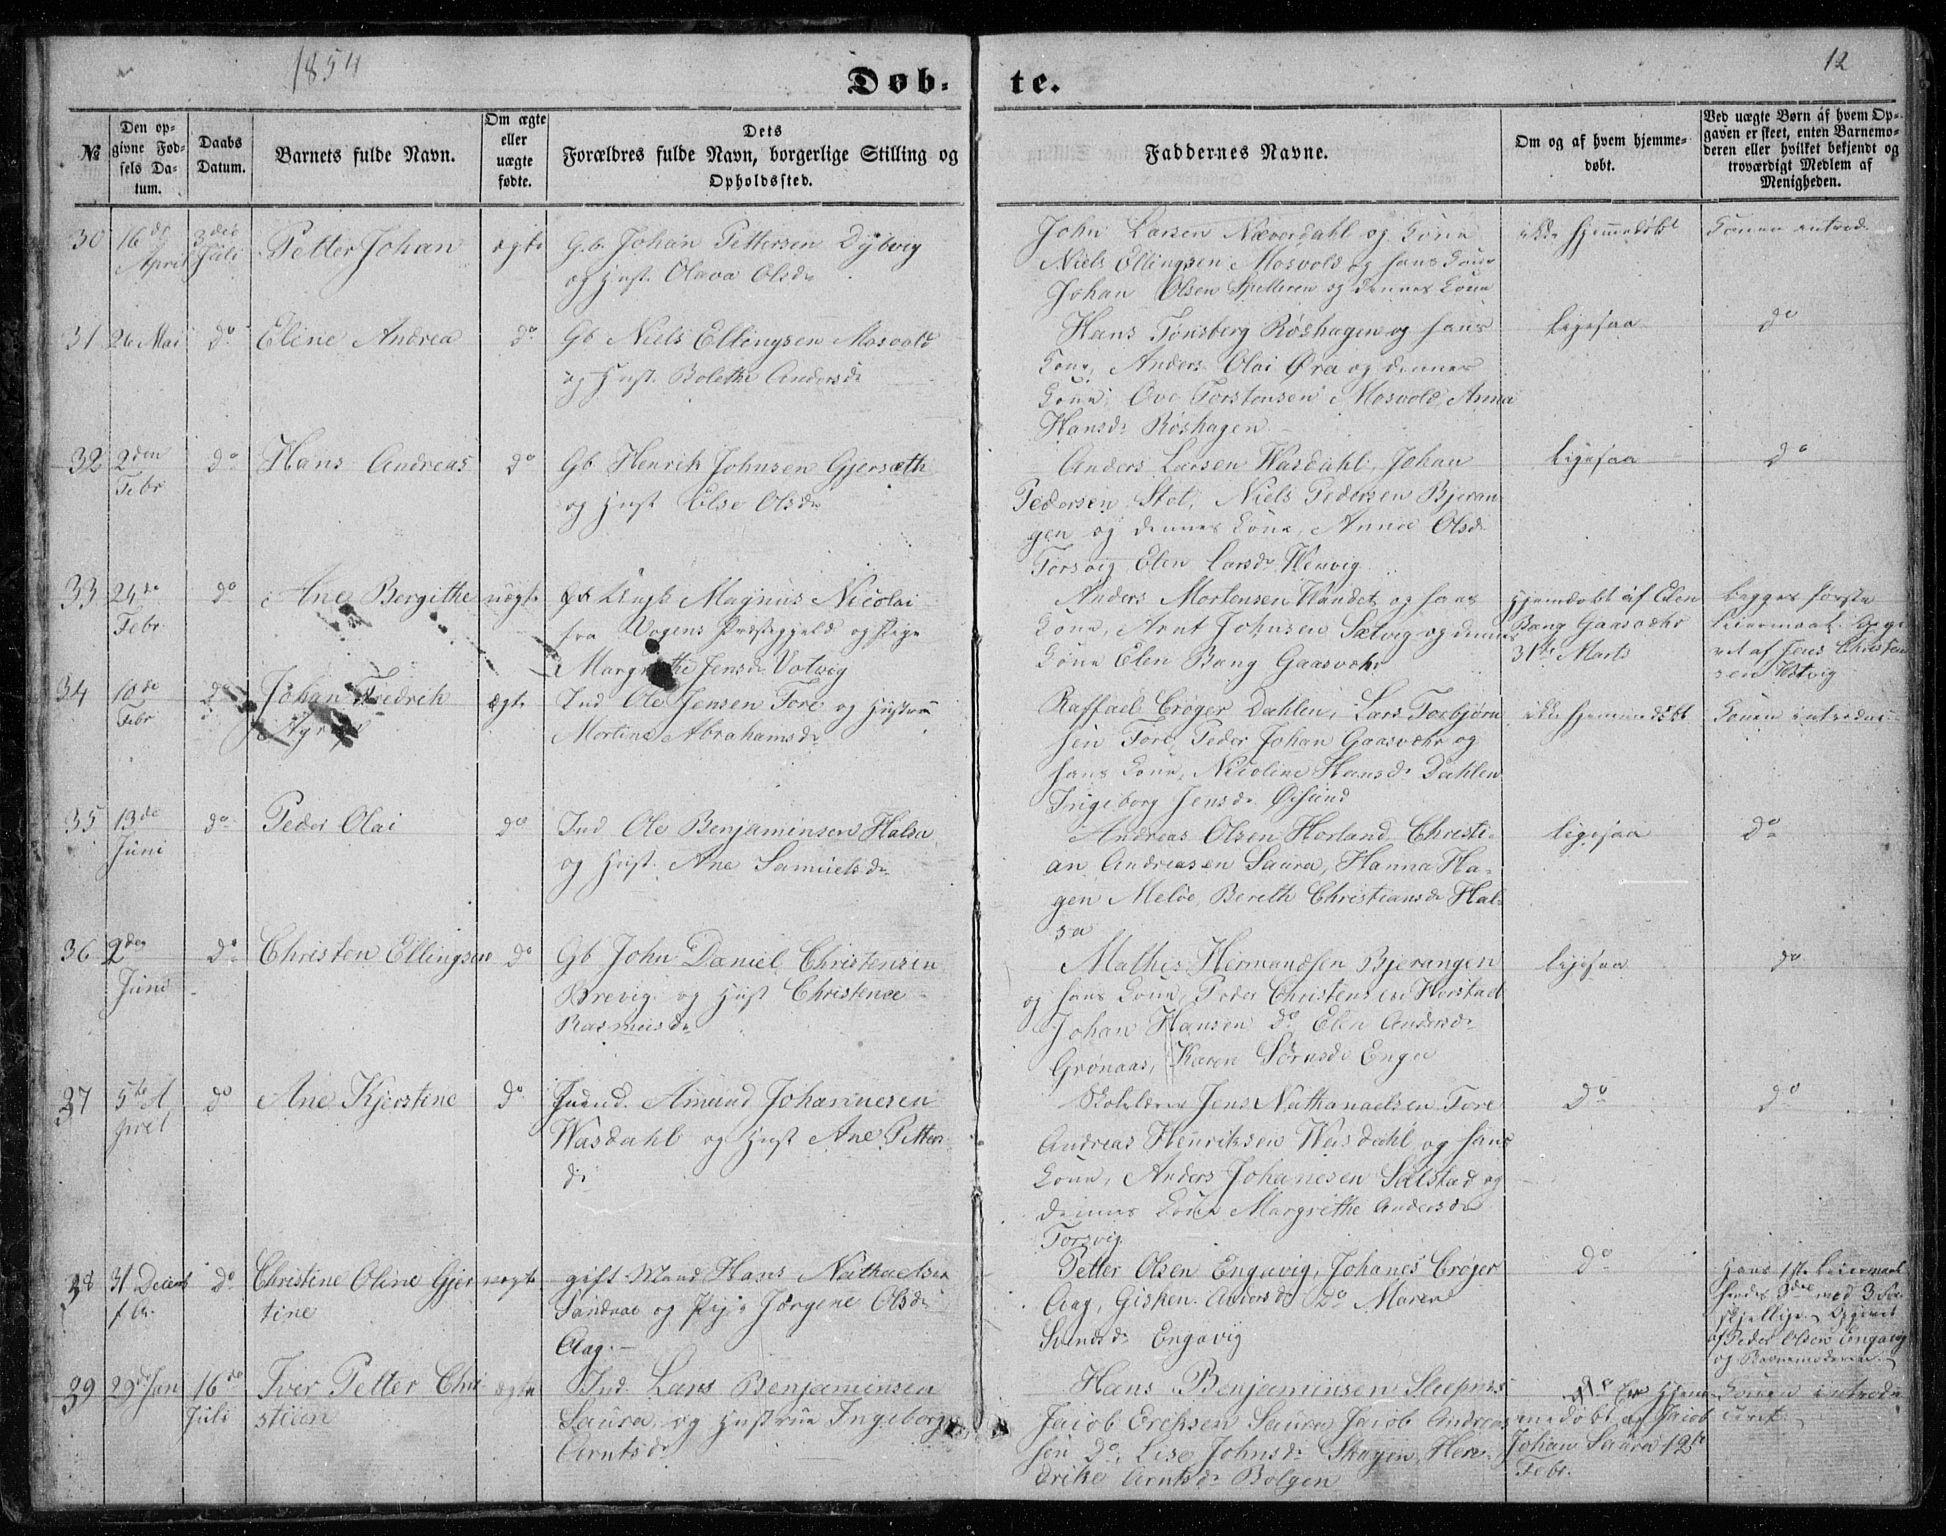 1854
12
Døb-
te.
№
Den op-
givne Fød-
sels Da-
tum.
Daabs
Datum.
Barnets fulde Navn.
Om ægte
eller
uægte
fødte.
Dets
Forældres fulde Navn, borgerlige Stilling og
Opholdssted.
Faddernes Navne.
Om og af hvem hjemme-
døbt.
Ved uægte Børn af hvem Op-
gaven er skeet, enten Barnemo-
deren eller hvilket bekjendt og
troværdigt Medlem af
Menigheden.
30
16de
April
3die
Juli
Petter Johan
ægte
Gb. Johan Pettersen Dybvig
og Hust. Olava Olsd
John Larsen Næverdahl og Kone
Niels Ellingsen Mosvold og hans Kone
Johan Olsen Spelleren og dennes Kone
ikke hjemmedøbt
Konen introd.
31
26 Mai
do
Eline Andrea
do
Gb Niels Ellingsen Mosvold
og Hust. Bolethe Andersd
Hans Tønsberg Røshagen og hans
Kone, Anders Olai Øra og dennes
Kone, Ove Torstensen Mosvold, Anna
Hansd. Røshagen
ligesaa
do
32
2den
Febr
do
Hans Andreas
do
Gb Henrik Johnsen Gjersæth
og Hust Else Olsd
Anders Larsen Wasdahl, Johan
Pedersen Stol, Niels Pedersen Bjeran-
gen og dennes Kone, Anne Olsd
Torsvig Elen Larsd. Henvig
ligesaa
do
33
24de
Febr
do
Ane Bergithe
uægte
Magnus Nicolai
fra Vogens Præstegjeld og Pige
Margrethe Jensd. Votvig
Anders Mortensen Vandet og hans
Kone, Arnt Johnsen Sætvig og dennes
Kone Elen Bang Gaasvær
Hjemdøbt af Elen
Bang Gaasvær
31te Marts
begges første
Leiermaal. Opgi-
vet af Jens Christen
sen Votvig
34
10de
Febr
do
Johan Fredrik
ægte
Ind Ole Jensen Fore og Hustrue
Mortine Abrahamsd
Raffael Crøger Dahlen, Lars Torbjørn
sen Fore, Peder Johan Gaasvær og
hans Kone, Nicoline Hansd. Dahlen
Ingeborg Jensd. Øesund
ikke hjemmedøbt
Konen introduc
35
13de
Juni
do
Peder Olai
do
Ind Ole Benjaminsen Halsa
og Hust. Ane Samuelsd
Andreas Olsen Horland Christi-
an Andreasen Saura, Hanna Ha-
gen Meløe, Bereth Christiansd Hal-
sa
ligesaa
do
36
2den
Juni
do
Christen Ellingsen
do
Gb John Daniel Christensen
Brevig og Hust Christence
Rasmusd
Mathis Hermandsen Bjerangen
og hans Kone, Peder Christensen Horstad
Johan Hansen do Elen Andersd
Grønaas, Karen Sørnsd. Enge
ligesaa
do
37
5te A
pril
do
Ane Kjerstine
do
Amund Johannesen
Wasdahl og Hust Ane Petters
d.
Skolelærer Jens Nathanaelsen Fore
Andreas Henriksen Wasdahl og hans
Kone, Anders Johanesen Salstad og
dennes Kone Margrethe Andersd
Torsvig
do
do
38
31 Decem
f. Aar
do
Christine Oline Gjer
tine
uægte
gift Mand Hans Nathaelsen
Sandvae og Pige Jørgene Olsd
Aag.
Petter Olsen Engavig, Johanes Crøger
Aag, Gisken Andersd do Maren
Svendsd. Engavig
do
Hans 1ste Leiermaal
hendes 3die med 3 for
skjellige. Opgivet
af Peder Olsen Engavig
og Barnemoderen.
39
29de Jan
16de
Juli
Iver Petter Chri
stian
ægte
Ind. Lars Benjaminsen
Saura og Hustrue Ingeborg
Arntsd
Hans Benjaminsen Sleepnes
Jacob Ericksen Saura, Jacob Andreas-
sen do, Lise Johnsd. Skagen, Hen-
drike Arntsd. Bolgen
Er Hjem-
medøbt af Jacob
Johan Saura 12te
Febr.
Konen introdu
ceret